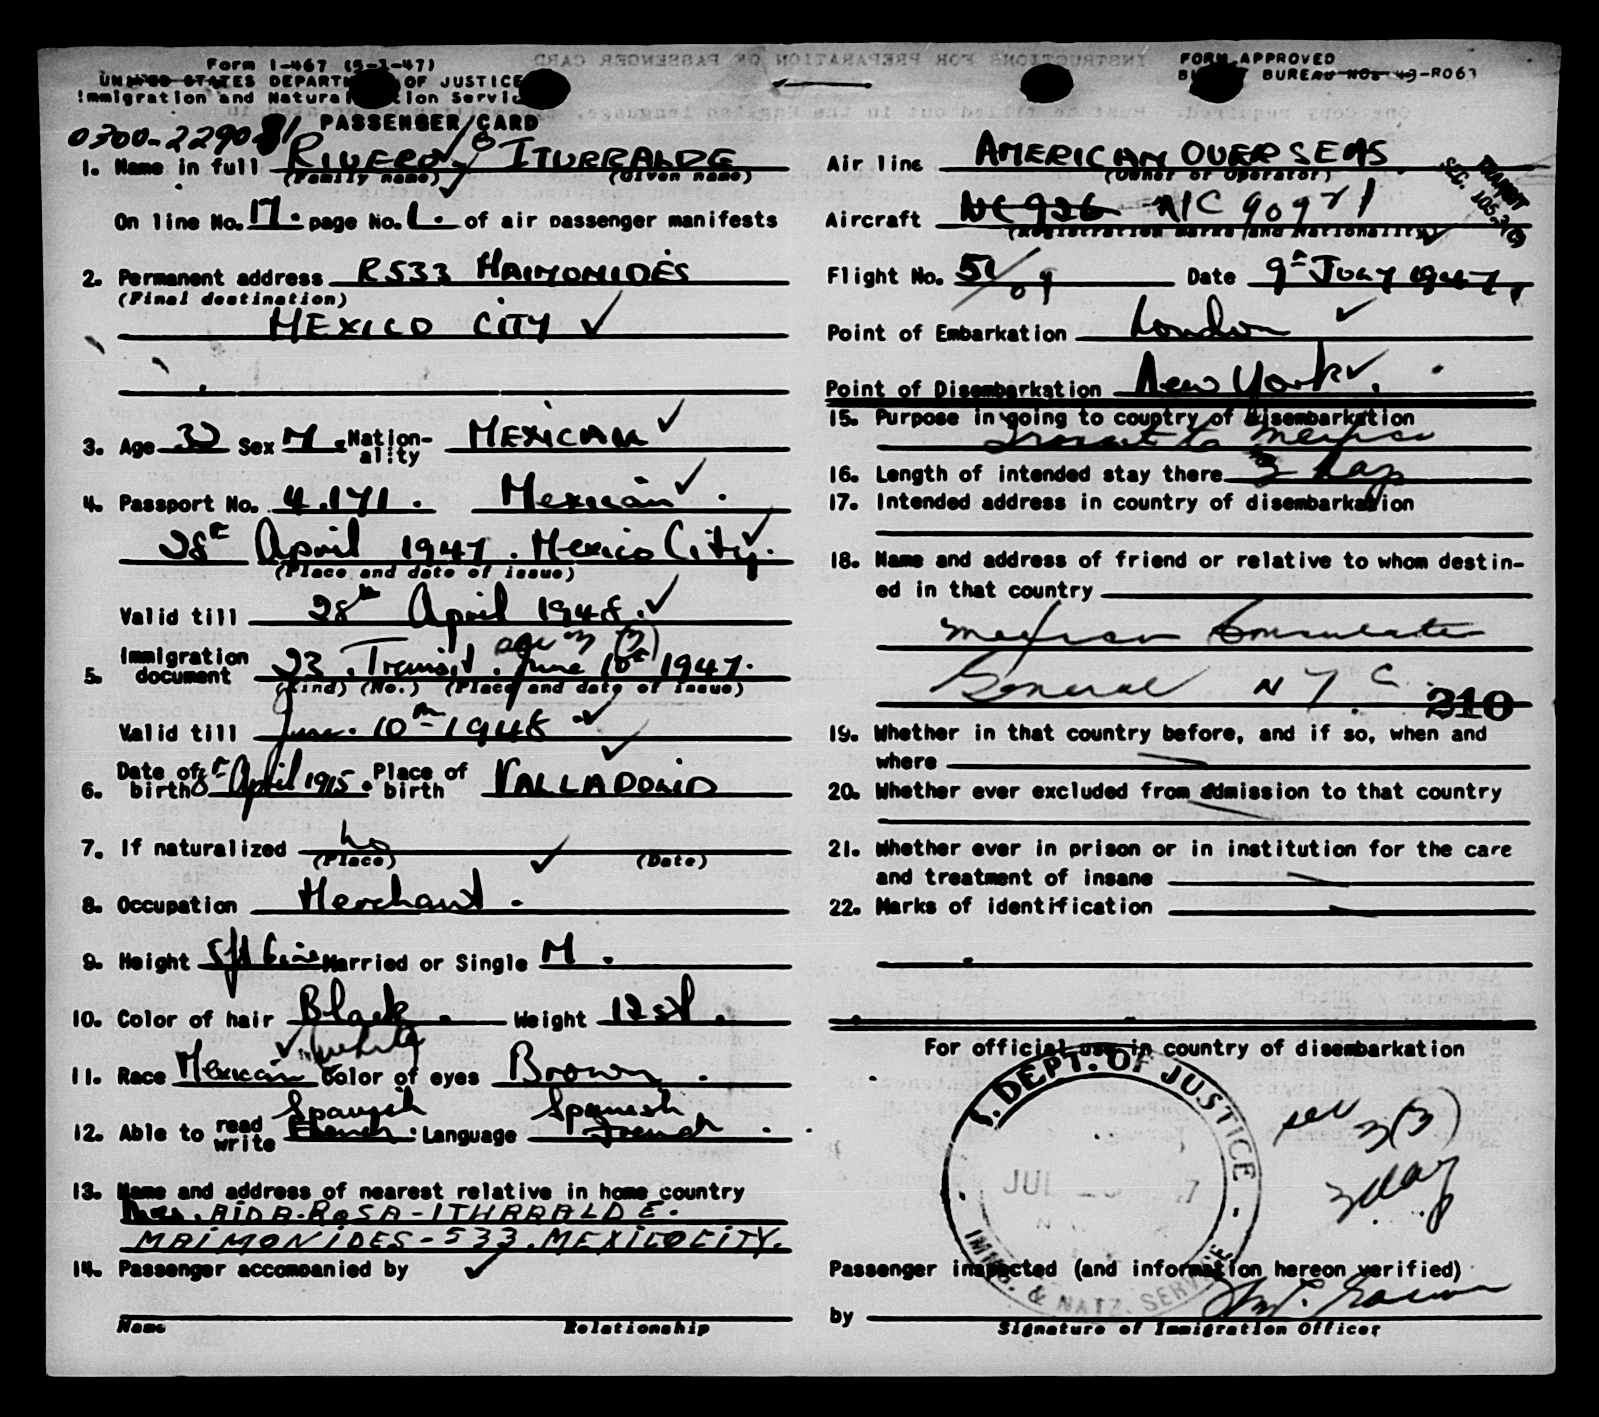 Form I-467 (5-1-47)
UNITED STATES DEPARTMENT OF JUSTICE
Immigration and Naturalization Service
PASSENGER CARD
0300-229081
1. Name in full RIVERO / ITURRALDE
(Family name) (Given name)
On line No. 17. page No. 1. of air passenger manifests
2. Permanent address R533 MAIMONIDES
(Final destination)
MEXICO CITY ✓
3. Age 32 Sex M. Nationality MEXICAN ✓
4. Passport No. 4.171. Mexican ✓.
28th April 1947. Mexico City. ✓
(Place and date of issue)
Valid till 28th April 1948. ✓
sec 3 (3)
5. Immigration document 23. Transit. June 10th 1947.
(Kind) (No.) (Place and date of issue)
Valid till June. 10th 1948 ✓
6. Date of birth April 1915. Place of birth VALLADOLID
7. If naturalized No
(Place) (Date)
8. Occupation Merchant.
9. Height 5ft 6ins Married or Single M.
10. Color of hair Black. Weight 12 st.
White
11. Race Mexican Color of eyes Brown.
12. Able to read write Spanish French. Language Spanish French
13. Name and address of nearest relative in home country
Mrs. AIDA-ROSA-ITURRALDE.
MAIMONIDES-533. MEXICO CITY.
14. Passenger accompanied by ✓
Name Relationship
INSTRUCTIONS FOR PREPARATION OF PASSENGER CARD
FORM APPROVED
BUDGET BUREAU NO. 43-R063
Air line AMERICAN OVERSEAS
(Owner or Operator)
TRANSIT
SEC. 105.3(3)
Aircraft NC 926 N/C 90921
(Registration marks and Nationality)
Flight No. 51/ 09 Date 9th JULY 1947
Point of Embarkation London ✓
Point of Disembarkation New York ✓.
15. Purpose in going to country of disembarkation
Transit to Mexico
16. Length of intended stay there 3 days
17. Intended address in country of disembarkation
18. Name and address of friend or relative to whom destin-
ed in that country
Mexican Consulate
General N Y C
210
19. Whether in that country before, and if so, when and
where
20. Whether ever excluded from admission to that country
21. Whether ever in prison or in institution for the care
and treatment of insane
22. Marks of identification
For official use in country of disembarkation
DEPT. OF JUSTICE
JUL 7
IMMG. & NATZ. SERVICE
sec 3(3)
3 day
Passenger inspected (and information hereon verified)
by
Signature of Immigration Officer